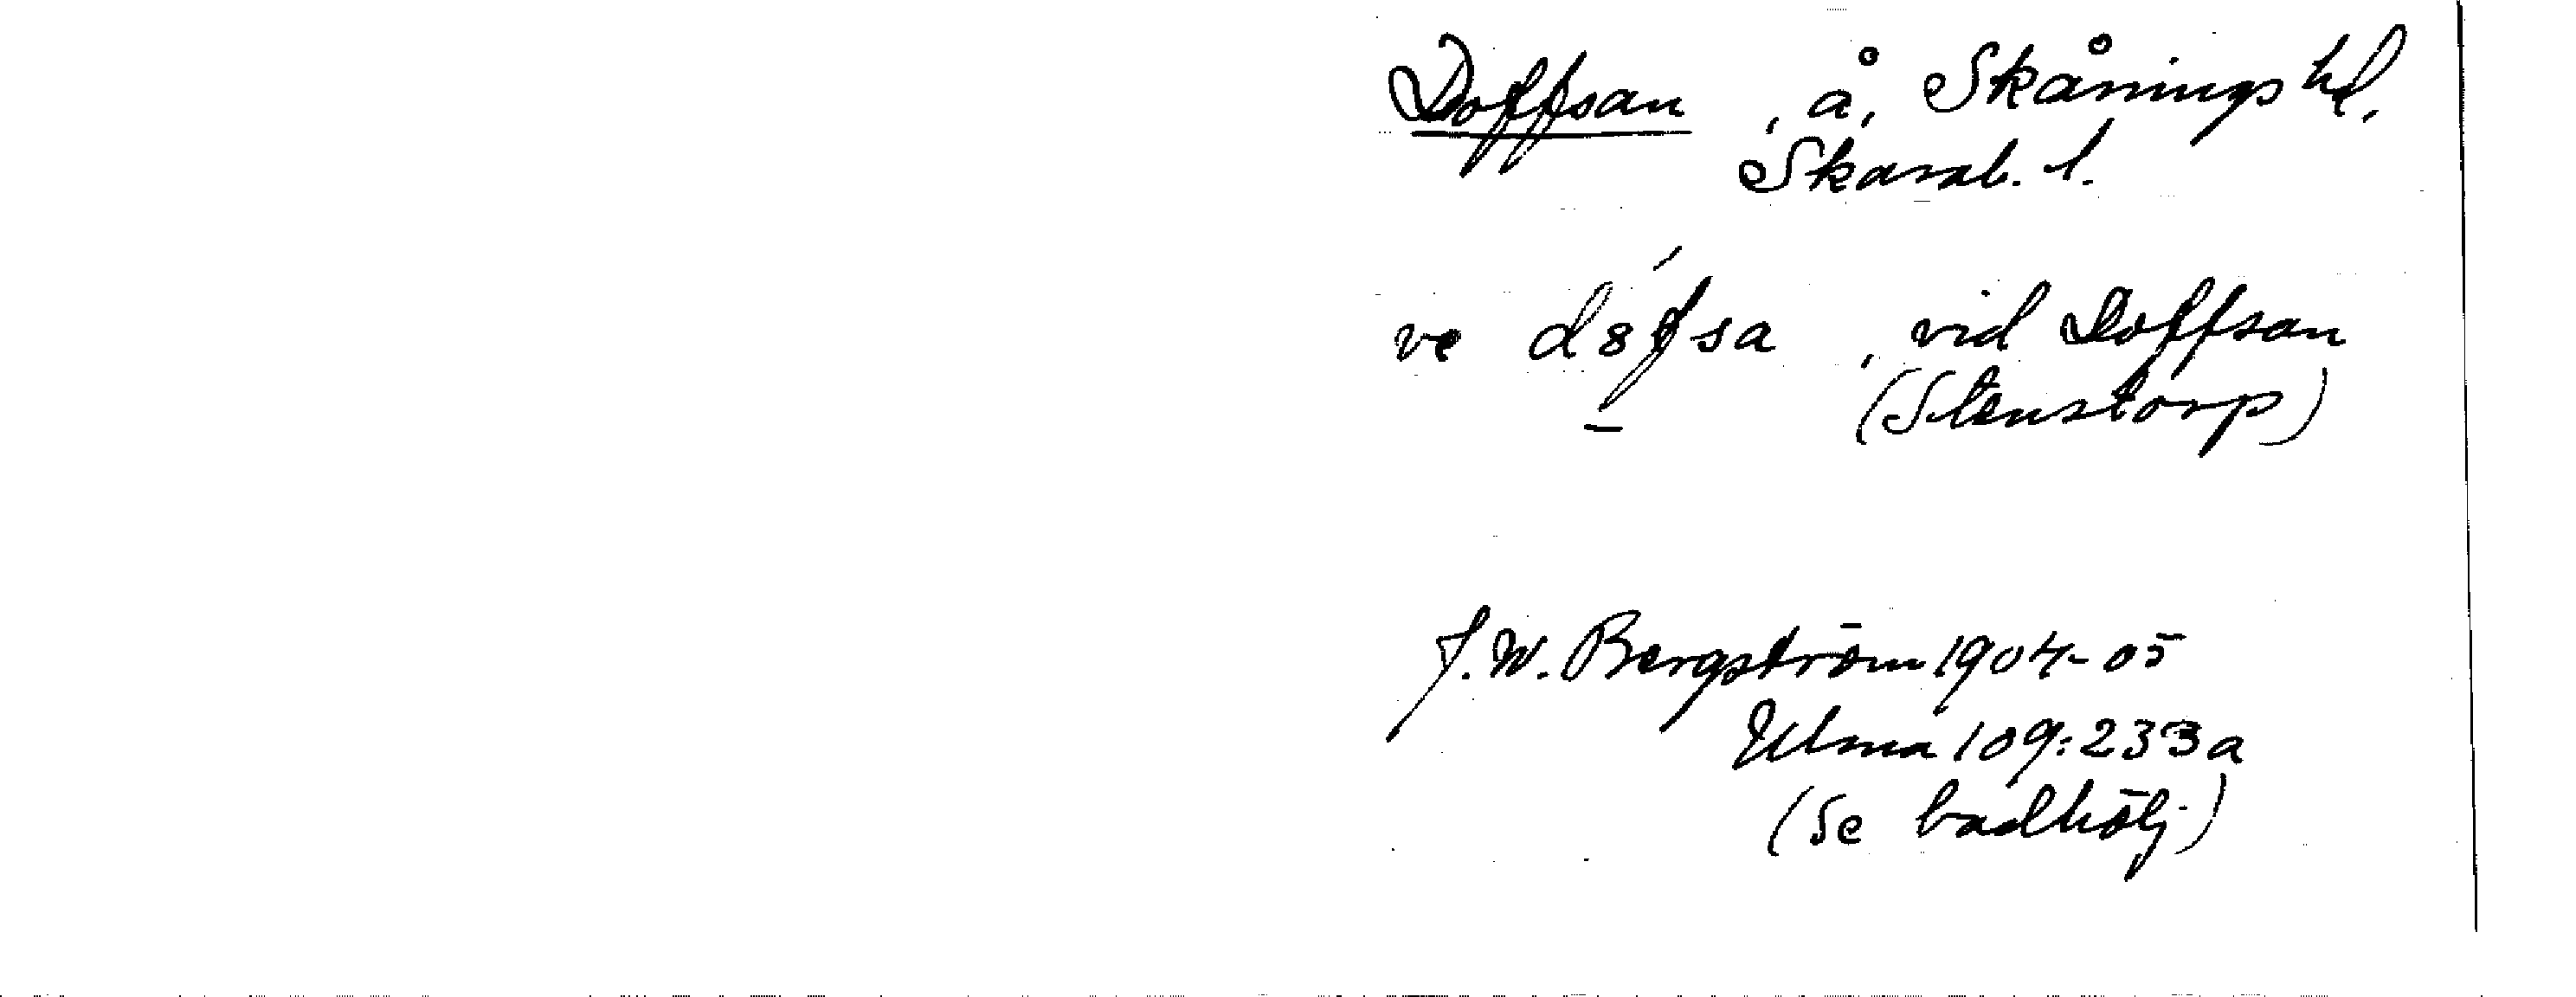 Doffsan, å, Skånings hd.
Skarab. l.
ve d8fsa, vid Doffsan
(Stenstorp)
J.W. Bergström 1904-05
Ulma 109:233a
(Se badhölj)